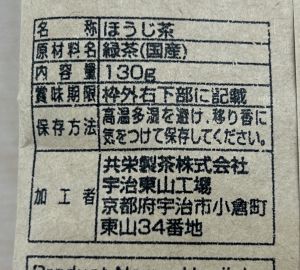 名称 ほうじ茶
原材料名 緑茶(国産)
内容量 130g
賞味期限 枠外右下部に記載
保存方法 高温多湿を避け、移り香に
気をつけて保存してください。
加工者 共栄製茶株式会社
宇治東山工場
京都府宇治市小倉町
東山34番地